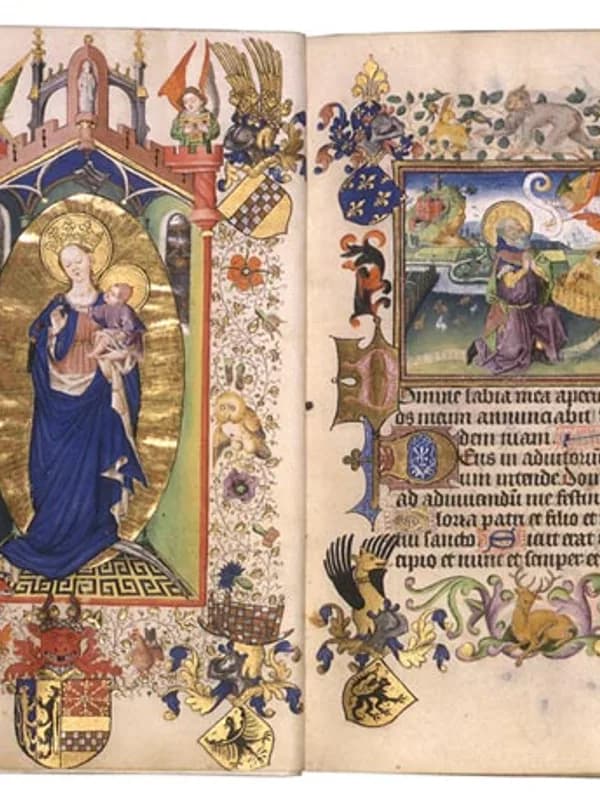 Domine labia mea aperi
os meum annunciabit
dem tuam.
Deus in adiutoriū
um intende Do
ad adiuuandū me festin
Gloria patri et filio et
tui sancto Sicut erat
cipio et nunc et semper et